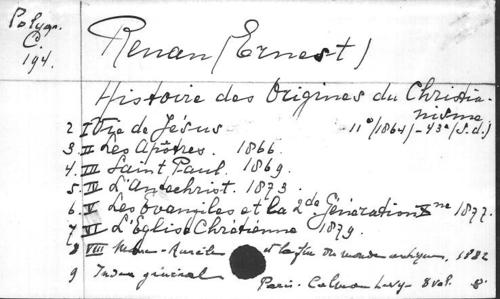 Polygr.
C.
194.
Renan (Ernest)
Histoire des Origines du Christia-
nisme
2 I Vie de Jésus 11e (1864) - 43e (S.d.)
3 II Les Apôtres. 1866.
4. III Saint Paul. 1869.
5. IV L'Antechrist. 1873.
6. V Les Evangiles et la 2de Génération Xne 1877.
7 VI L'Eglise Chrétienne 1879.
8 VIII Marc-Aurèle et la fin du monde antique. 1882
9 Index général
Paris. Calman Levy - 8 vol. 8°